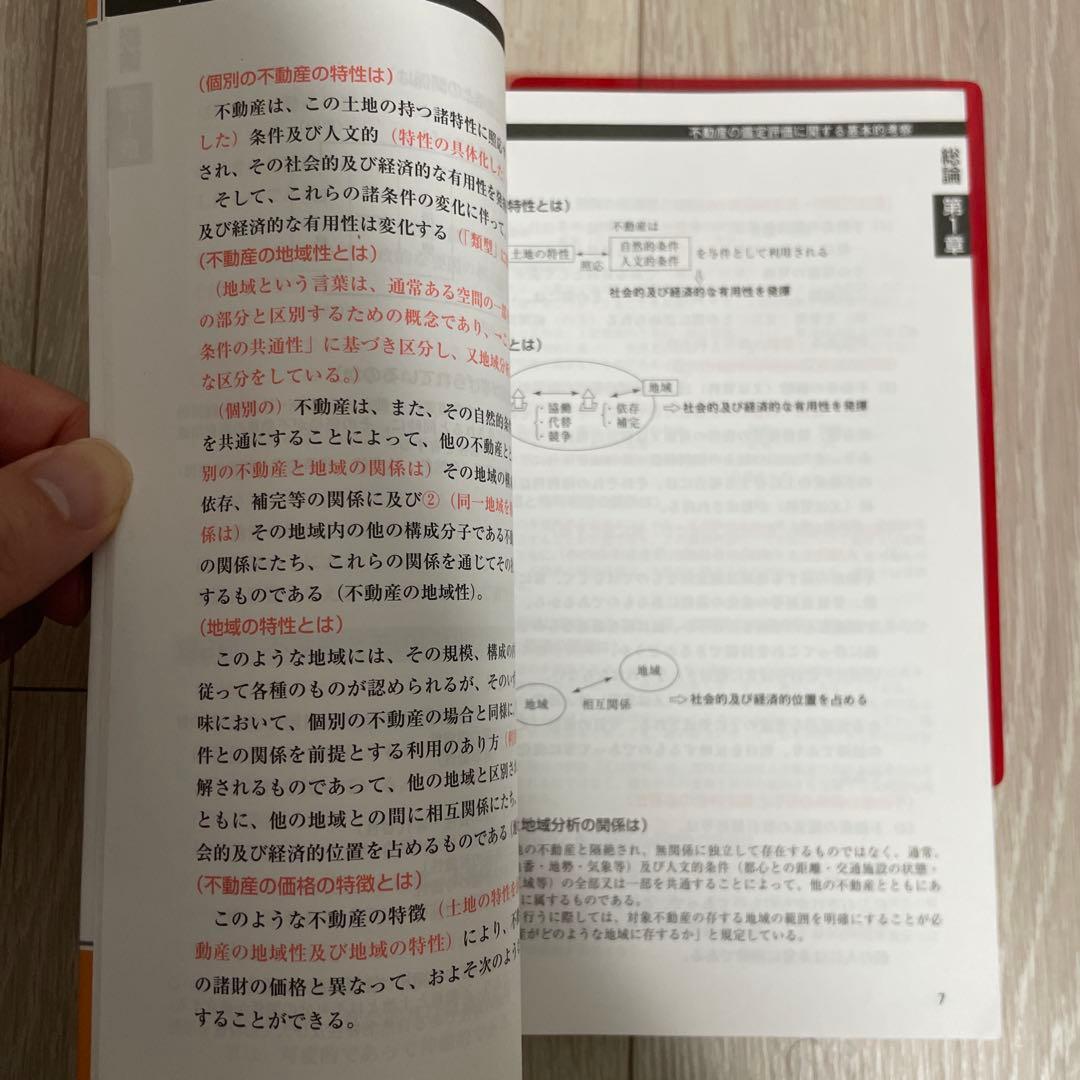 (個別の不動産の特性は)
不動産は、この土地の持つ諸特性に照応
した) 条件及び人文的 (特性の具体化した
され、その社会的及び経済的な有用性を発
そして、これらの諸条件の変化に伴って、
及び経済的な有用性は変化する (「類型」
(不動産の地域性とは)
(地域という言葉は、通常ある空間の一部
の部分と区別するための概念であり、
条件の共通性」に基づき区分し、又地域分
な区分をしている。)
(個別の) 不動産は、また、その自然的条
を共通にすることによって、他の不動産と
別の不動産と地域の関係は) その地域の構
依存、補完等の関係に及び② (同一地域を
係は) その地域内の他の構成分子である不
の関係にたち、これらの関係を通じてその
するものである (不動産の地域性)。
(地域の特性とは)
このような地域には、その規模、構成の
従って各種のものが認められるが、そのい
味において、個別の不動産の場合と同様に
件との関係を前提とする利用のあり方
解されるものであって、他の地域と区別さ
ともに、他の地域との間に相互関係にたち
会的及び経済的位置を占めるものである
(不動産の価格の特徴とは)
このような不動産の特徴 (土地の特性を
動産の地域性及び地域の特性) により、不
の諸財の価格と異なって、およそ次のよう
することができる。
不動産の鑑定評価に関する基本的考察
総論
第1章
特性とは)
不動産は
土地の特性
照応
自然的条件
人文的条件
を与件として利用される
社会的及び経済的な有用性を発揮
とは)
協働
代替
競争
依存
補完
地域
⇨社会的及び経済的な有用性を発揮
地域
相互関係
地域
⇨社会的及び経済的位置を占める
地域分析の関係は)
の不動産と隔絶され、無関係に独立して存在するものではなく、通常、
番・地勢・気象等) 及び人文的条件 (都心との距離・交通施設の状態・
域等) の全部又は一部を共通することによって、他の不動産とともにあ
に属するものである。
行うに際しては、対象不動産の存する地域の範囲を明確にすることが必
産がどのような地域に存するか」と規定している。
7